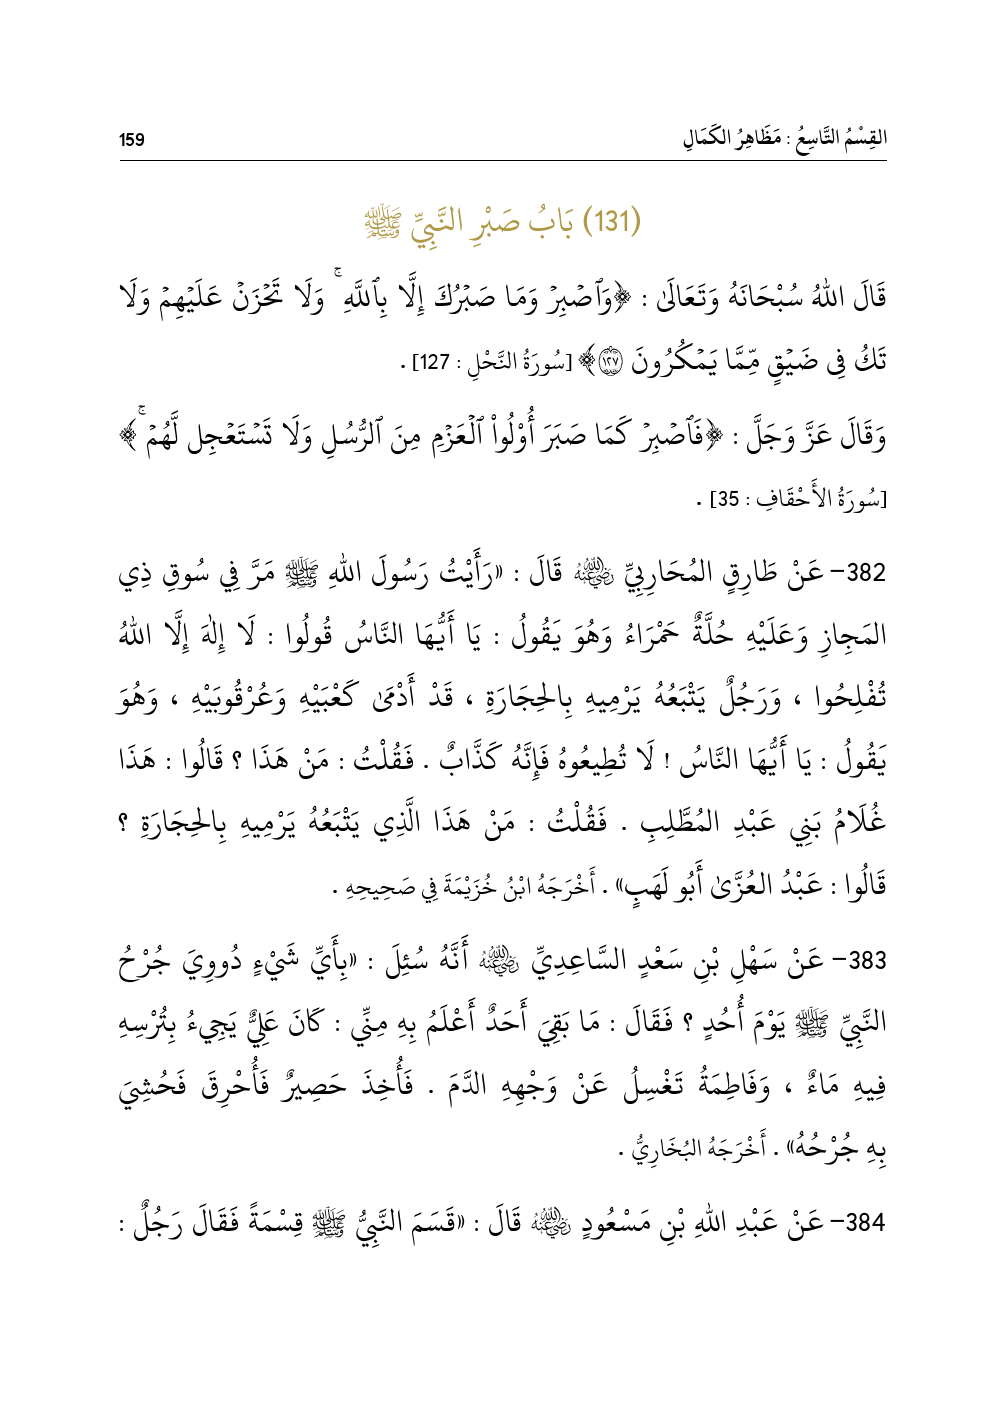 القِسْمُ التَّاسِعُ : مَظَاهِرُ الكَمَالِ 159
(131) بَابُ صَبْرِ النَّبِيِّ ﷺ
قَالَ اللهُ سُبْحَانَهُ وَتَعَالَىٰ : ﴿وَٱصۡبِرۡ وَمَا صَبۡرُكَ إِلَّا بِٱللَّهِۚ وَلَا تَحۡزَنۡ عَلَيۡهِمۡ وَلَا
تَكُ فِي ضَيۡقٍ مِّمَّا يَمۡكُرُونَ ١٢٧﴾ [سُورَةُ النَّحْلِ : 127] .
وَقَالَ عَزَّ وَجَلَّ : ﴿فَٱصۡبِرۡ كَمَا صَبَرَ أُوْلُواْ ٱلۡعَزۡمِ مِنَ ٱلرُّسُلِ وَلَا تَسۡتَعۡجِل لَّهُمۡۚ﴾
[سُورَةُ الأَحْقَافِ : 35] .
382- عَنْ طَارِقٍ المُحَارِبِيِّ ﵁ قَالَ : «رَأَيْتُ رَسُولَ اللهِ ﷺ مَرَّ فِي سُوقِ ذِي
المَجِازِ وَعَلَيْهِ حُلَّةٌ حَمْرَاءُ وَهُوَ يَقُولُ : يَا أَيُّهَا النَّاسُ قُولُوا : لَا إِلٰهَ إِلَّا اللهُ
تُفْلِحُوا ، وَرَجُلٌ يَتْبَعُهُ يَرْمِيهِ بِالحِجَارَةِ ، قَدْ أَدْمَىٰ كَعْبَيْهِ وَعُرْقُوبَيْهِ ، وَهُوَ
يَقُولُ : يَا أَيُّهَا النَّاسُ ! لَا تُطِيعُوهُ فَإِنَّهُ كَذَّابٌ . فَقُلْتُ : مَنْ هَذَا ؟ قَالُوا : هَذَا
غُلَامُ بَنِي عَبْدِ المُطَّلِبِ . فَقُلْتُ : مَنْ هَذَا الَّذِي يَتْبَعُهُ يَرْمِيهِ بِالحِجَارَةِ ؟
قَالُوا : عَبْدُ العُزَّىٰ أَبُو لَهَبٍ» . أَخْرَجَهُ ابْنُ خُزَيْمَةَ فِي صَحِيحِهِ .
383- عَنْ سَهْلِ بْنِ سَعْدٍ السَّاعِدِيِّ ﵁ أَنَّهُ سُئِلَ : «بِأَيِّ شَيْءٍ دُووِيَ جُرْحُ
النَّبِيِّ ﷺ يَوْمَ أُحُدٍ ؟ فَقَالَ : مَا بَقِيَ أَحَدٌ أَعْلَمُ بِهِ مِنِّي : كَانَ عَلِيٌّ يَجِيءُ بِتُرْسِهِ
فِيهِ مَاءٌ ، وَفَاطِمَةُ تَغْسِلُ عَنْ وَجْهِهِ الدَّمَ . فَأُخِذَ حَصِيرٌ فَأُحْرِقَ فَحُشِيَ
بِهِ جُرْحُهُ» . أَخْرَجَهُ البُخَارِيُّ .
384- عَنْ عَبْدِ اللهِ بْنِ مَسْعُودٍ ﵁ قَالَ : «قَسَمَ النَّبِيُّ ﷺ قِسْمَةً فَقَالَ رَجُلٌ :